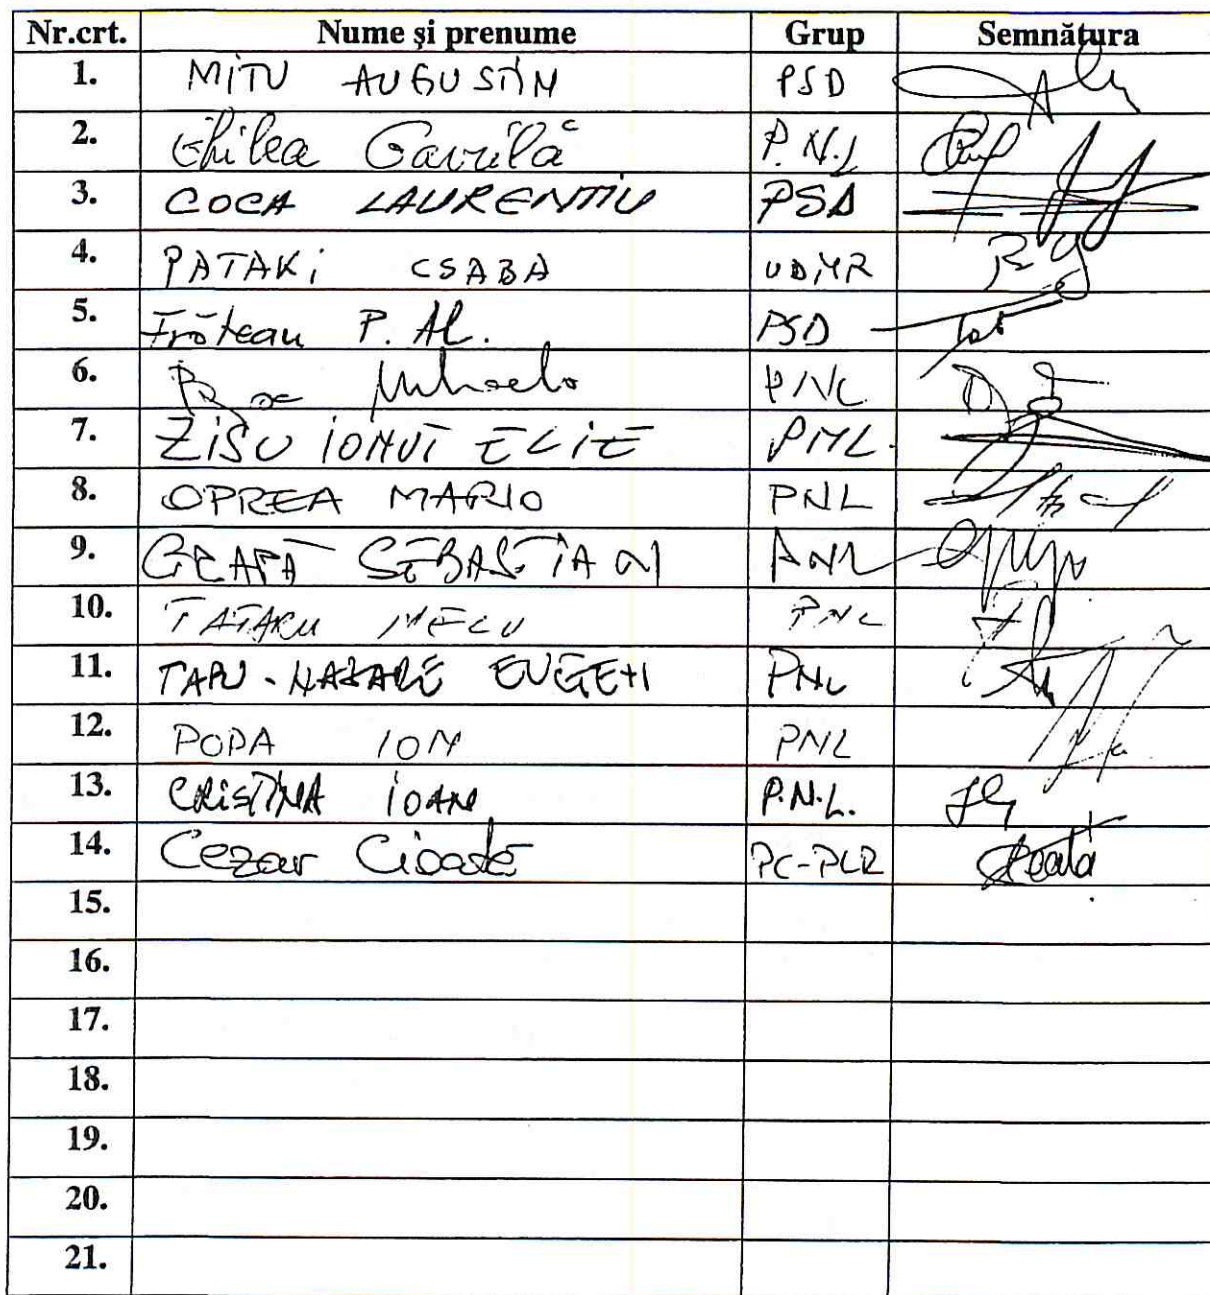 Nr.crt. Nume şi prenume Grup Semnătura
1. MITU AUGUSTIN PSD
2. Ghilea Gavrilă P.N.L
3. COCA LAURENTIU PSD
4. PATAKi CSABA UDMR
5. P. Al. PSD
6. PNL
7. ZiSU iONUT ELiE PNL.
8. OPREA MARIO PNL
9. SEBASTIAN PNL
10. TATARU NELU PNL
11. EUGEN PNL
12. POPA ION PNL
13. CRiSTINA iOAN P.N.L.
14. Cezar Cioată PC-PLR
15.
16.
17.
18.
19.
20.
21.